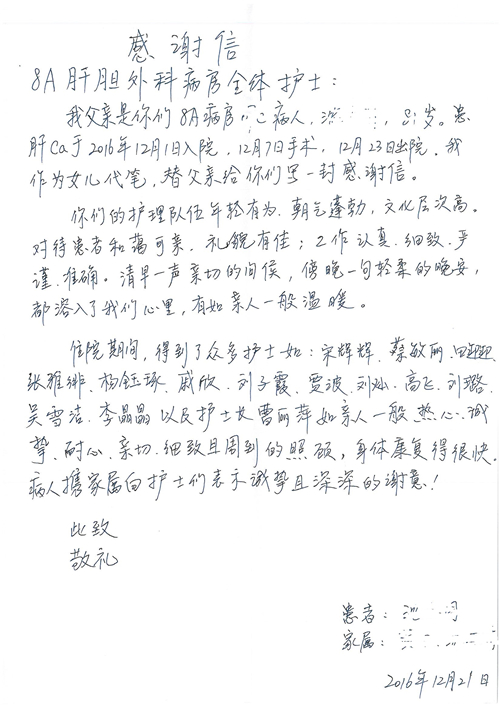 感谢信
8A肝胆外科病房全体护士：
我父亲是你们8A病房的病人，8岁。患
肝Ca于2016年12月1日入院，12月7日手术，12月23日出院。我
作为女儿代笔，替父亲给你们写一封感谢信。
你们的护理队伍年轻有为、朝气蓬勃，文化层次高。
对待患者和蔼可亲、礼貌有佳；工作认真、细致、严
谨、准确。清早一声亲切的问侯，傍晚一句轻柔的晚安，
都溶入了我们心里，有如亲人一般温暖。
住院期间，得到了众多护士如：宋辉辉、蔡敏丽、
张雅绯、杨钰琢、戚欣、刘子霞、贾波、刘灿、高飞、刘璐、
吴雪洁、李晶晶以及护士长曹丽萍如亲人一般热心、诚
挚、耐心、亲切、细致且周到的照顾，身体康复得很快。
病人携家属向护士们表示诚挚且深深的谢意！
此致
敬礼
患者：
家属：
2016年12月21日